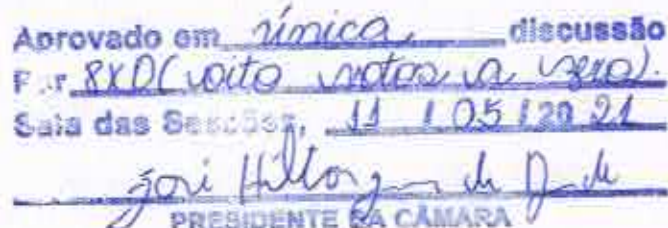 Aprovado em única discussão
Por 8x0 (oito votos a zero).
Sala das Sessões, 11 / 05 / 20 21
PRESIDENTE DA CÂMARA